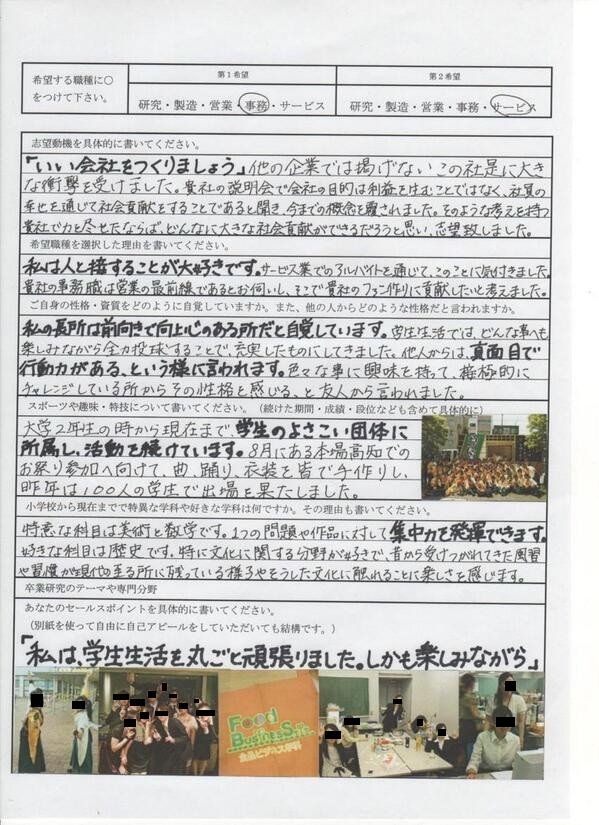 希望する職種に○
をつけて下さい。
第1希望
研究・製造・営業・事務・サービス
第2希望
研究・製造・営業・事務・サービス
志望動機を具体的に書いてください。
「いい会社をつくりましょう」他の企業では掲げないこの社是に大き
な衝撃を受けました。貴社の説明会で会社の目的は利益を生むことではなく、社員の
幸せを通じて社会貢献をすることであると聞き、今までの概念を覆されました。そのような考えを持つ
貴社で力を尽せたならば、どんなに大きな社会貢献ができるだろうと思い、志望致しました。
希望職種を選択した理由を書いてください。
私は人と接することが大好きです。サービス業でのアルバイトを通じて、このことに気付きました。
貴社の事務職は営業の最前線であるとお伺いし、そこで貴社のファン作りに貢献したいと考えました。
ご自身の性格・資質をどのように自覚していますか。また、他の人からどのような性格だと言われますか。
私の長所は前向きで向上心のある所だと自覚しています。学生生活では、どんな事へも
楽しみながら全力投球することで、充実したものにしてきました。他人からは、真面目で
行動力がある、という様に言われます。色々な事に興味を持って、積極的に
チャレンジしている所からその性格を感じる、と友人から言われました。
スポーツや趣味・特技について書いてください。(続けた期間・成績・段位なども含めて具体的に)
大学2年生の時から現在まで学生のよさこい団体に
所属し、活動を続けています。8月にある本場高知での
お祭り参加へ向けて、曲、踊り、衣装を皆で手作りし、
昨年は100人の学生で出場を果たしました。
小学校から現在までで得意な学科や好きな学科は何ですか。その理由も書いてください。
得意な科目は美術と数学です。1つの問題や作品に対して集中力を発揮できます。
好きな科目は歴史です。特に文化に関する分野が好きで、昔から受けつがれてきた風習
や習慣が現代の至る所に残っている様子やそうした文化に触れることに楽しさを感じます。
卒業研究のテーマや専門分野
あなたのセールスポイントを具体的に書いてください。
(別紙を使って自由に自己アピールをしていただいても結構です。)
「私は、学生生活を丸ごと頑張りました。しかも楽しみながら」
Food
Business
食品ビジネス学科